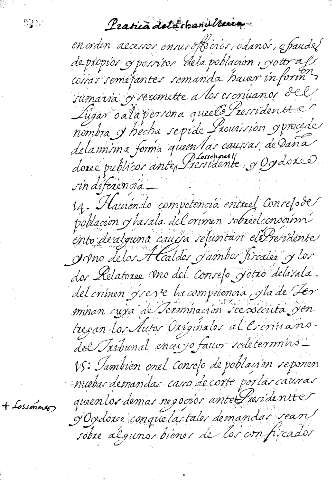 Pratica de la chanzilleria
en orden a excesos en sus offiçios, o danos, o fraudes
de propios y positos de la poblaçion, y otras
cosas semejantes se manda hacer informn
sumaria y se remitte a los escrivanos del
Lugar o a la persona que el Pressidentte
nombra, y hecha se pide Provission y proçede
en la misma forma que en las causas, de Dana
dores publicos ante Pressidente, y Oydores
sin diferençia.
14. Haviendo competençia entre el Consejo de
poblaçion y la sala del Crimen sobre el conocimi
ento de alguna caussa se juntan el Presidente
y Uno de los Alcaldes y ambos fiscales y los
dos Relatores Uno del Consejo y otro de la sala
del crimen y se ve la competençia, y la de Ter
minan suya de Terminaçion se executa y en
tregan los Autos Originales al Escrivano
del Tribunal en cuyo favor se determino
15. Tambien en el Consejo de poblaçion se ponen
nuebas demandas caso de corte por las causas
que en los demas negoçios ante Pressidenttes
y Oydores con que las tales demandas sean
sobre algunos bienes de los confiscados